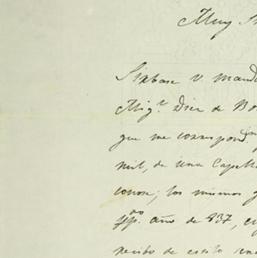 Muy
Sirbase V. mand
Mig.l Diez de Bo
que me correspond
mil, de una Capell
conose; los mismos
pp.do año de 837, c
recibo de estilo